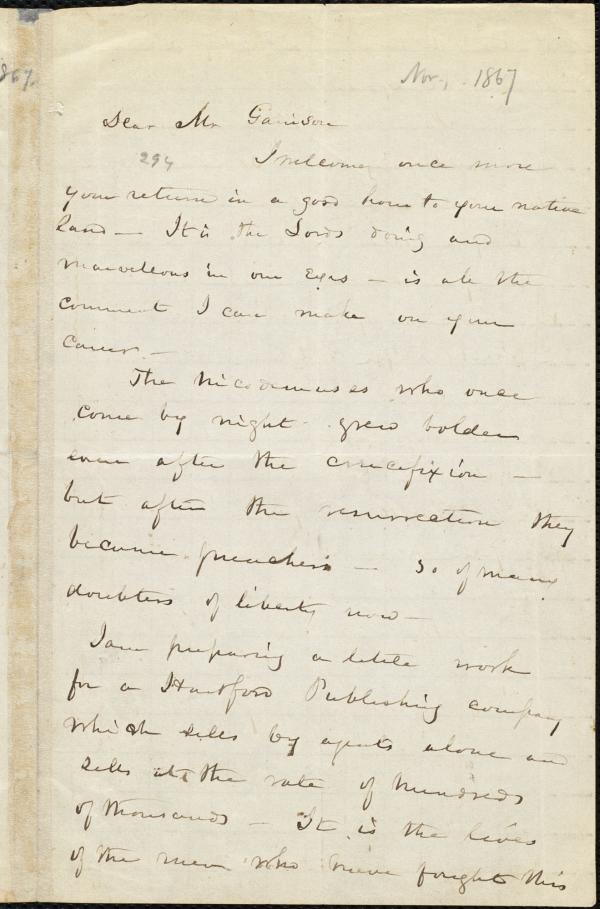 867.
Nov, 1867
Dear Mr Garrison
294 I welcome once more
your return in a good hour to your native
land — It is the Lords doing and
marvellous in our Eyes — is all the
comment I can make on your
career —
The Nicodemuses who once
come by night grew bolder
even after the crucifixion —
but after the resurrection they
became preachers — So of many
doubters of liberty now —
I am preparing a little work
for a Hartford Publishing company
which sells by agents alone and
sells at the rate of hundreds
of thousands — It is the lives
of the men who have fought this